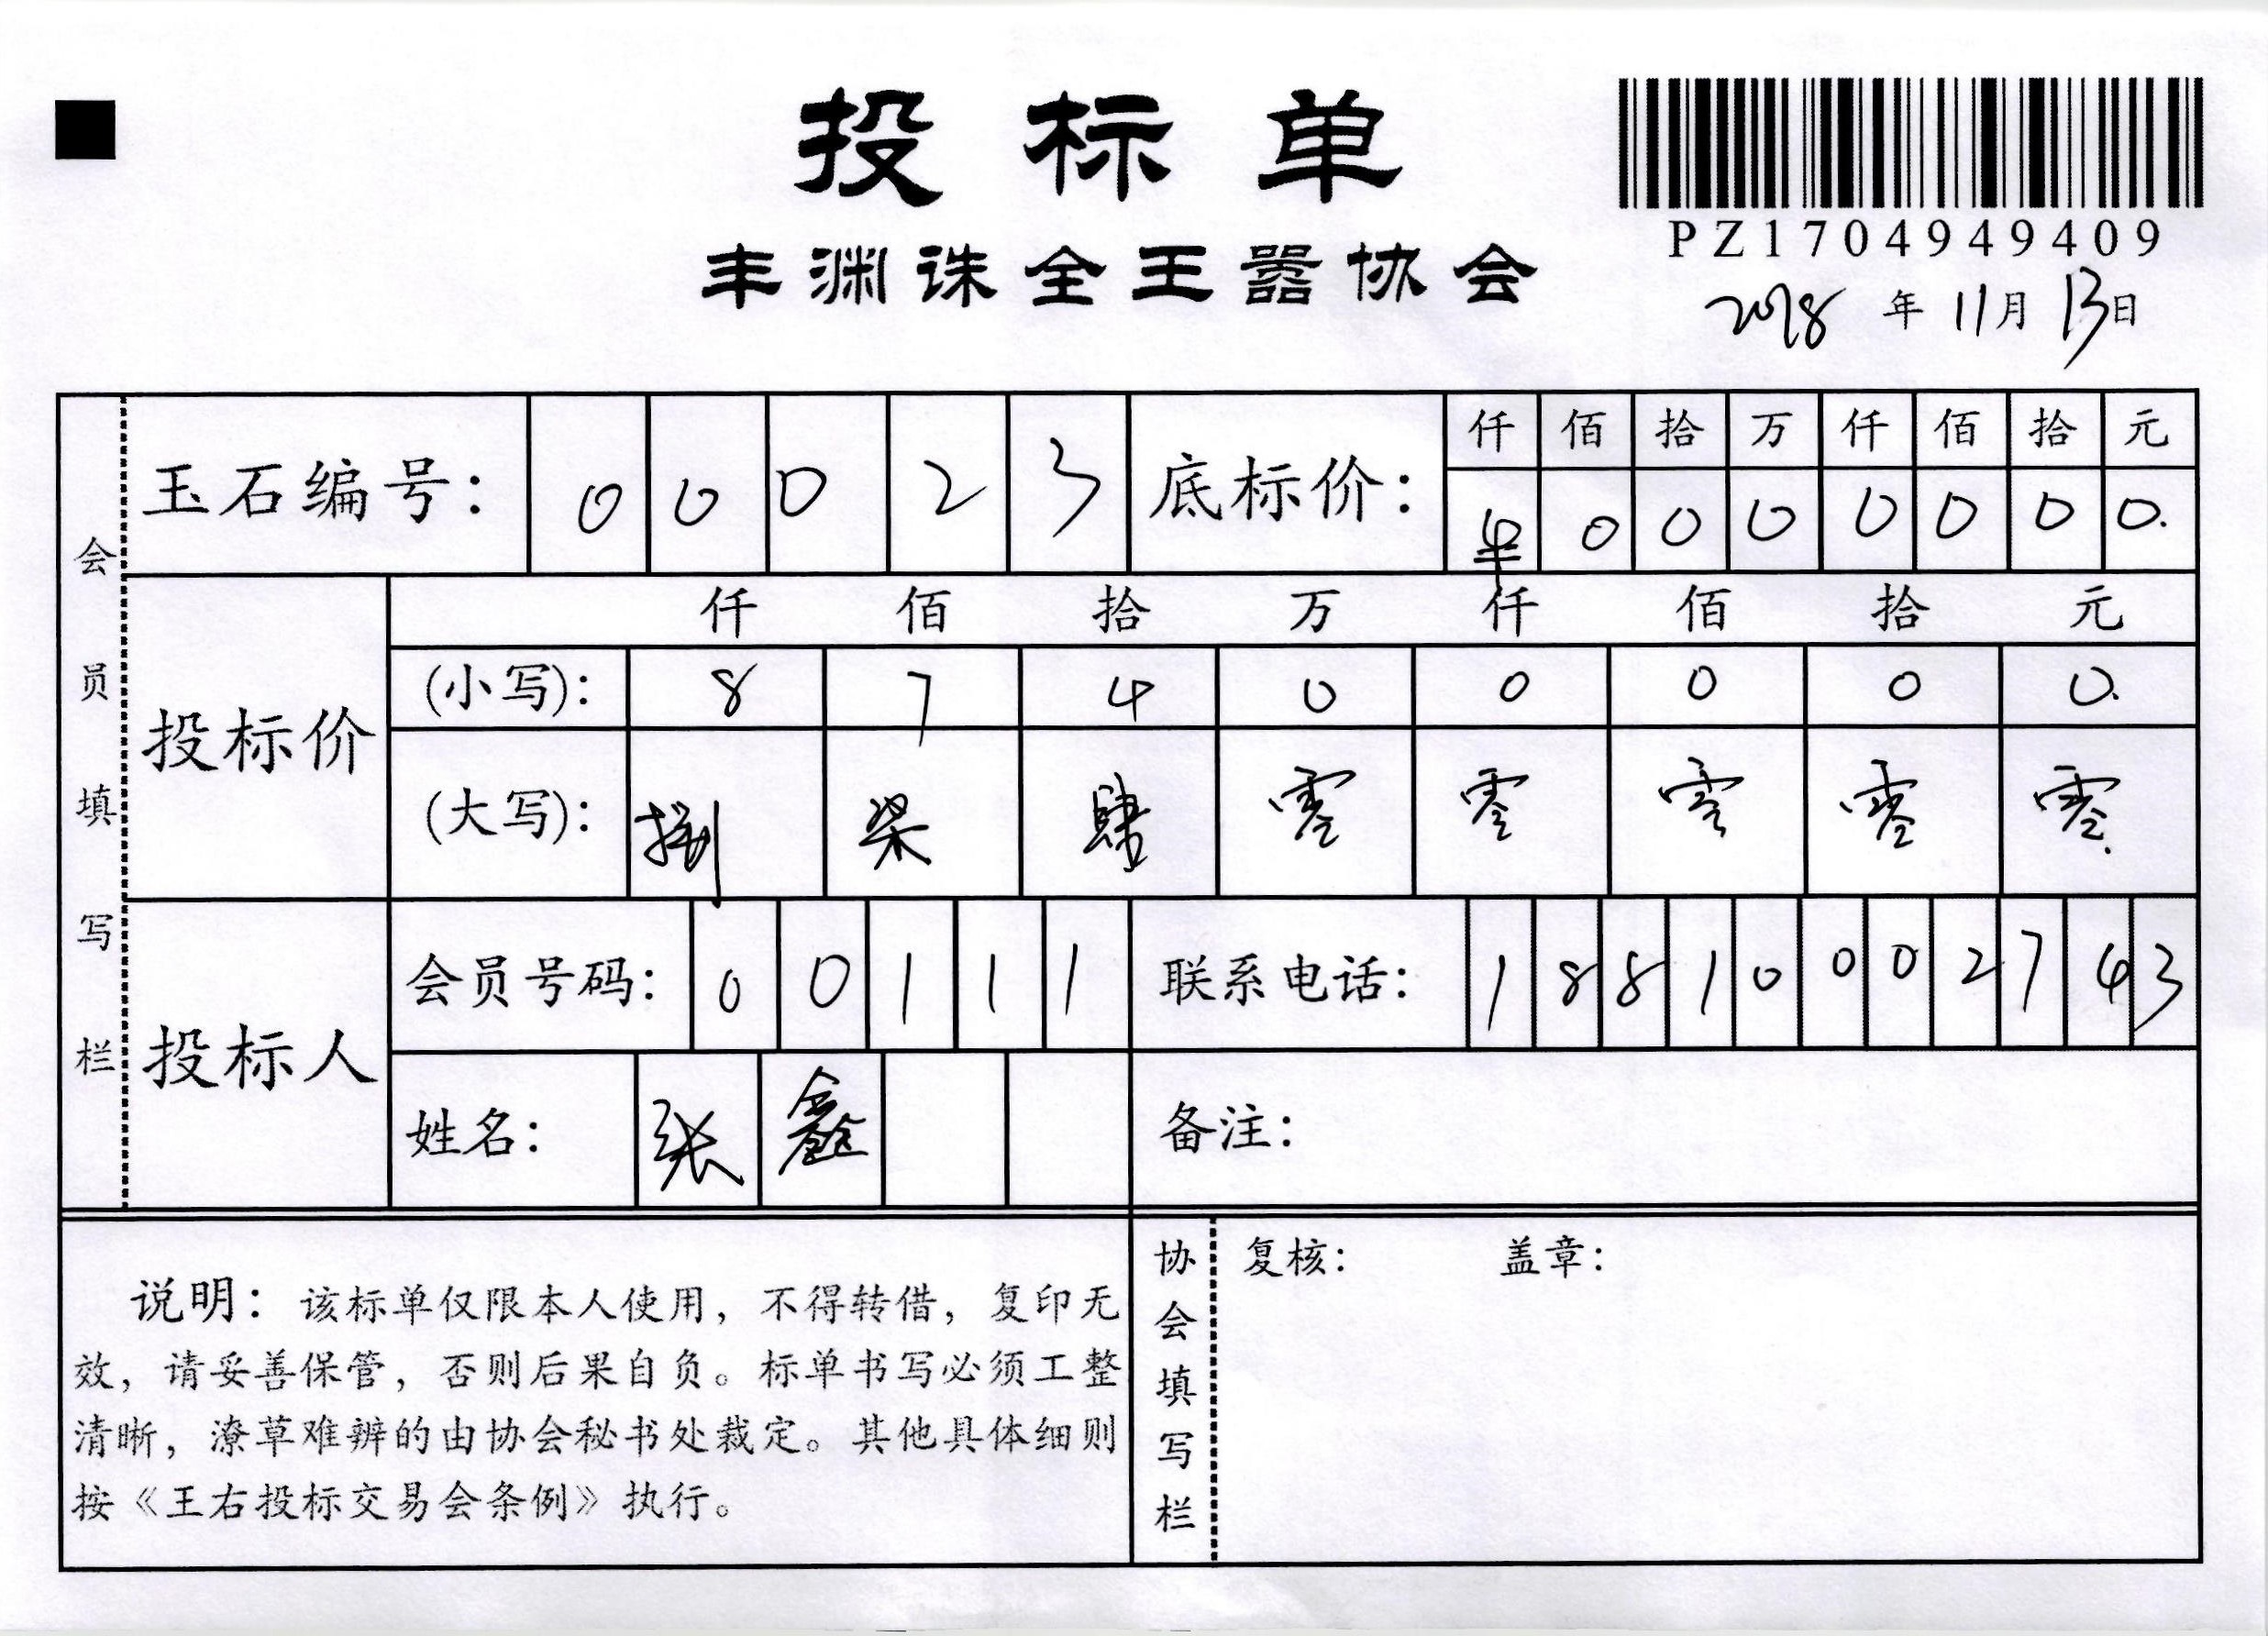 投标单
丰渊诛全王嚣协会
PZ1704949409
2018年11月13日
会员填写栏
玉石编号: 00023
底标价: 仟佰拾万仟佰拾元
0000000.
投标价
仟佰拾万仟佰拾元
(小写): 87400000.
(大写): 捌柒肆零零零零零.
投标人
会员号码: 00111
联系电话: 18810002743
姓名: 张鑫
备注:
说明: 该标单仅限本人使用, 不得转借, 复印无
效, 请妥善保管, 否则后果自负。标单书写必须工整
清晰, 潦草难辨的由协会秘书处裁定。其他具体细则
按《王右投标交易会条例》执行。
协会填写栏
复核: 盖章: